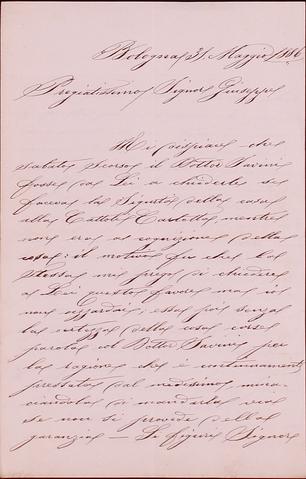 Bologna 31. Maggio 1886
Pregiatissimo Signor Giuseppe
Mi dispiace che
sabato scorso il Dottor Tavini
fosse da Lei a chiederle se
faceva la Sigurtà della casa
alla Cattola Carlotta mentre
non era a cognizione della
cosa: il motivo fu che la
stessa mi pregò di chiedere
a Lei questo favore ma io
non azzardai; essa poi senza
la certezza della cosa corse
parola col Dottor Tavini per
la ragione che è continuamente
pressata dal medesimo mina-
ciandola di mandarla via
se non si provede della
garanzia — Si figuri Signor